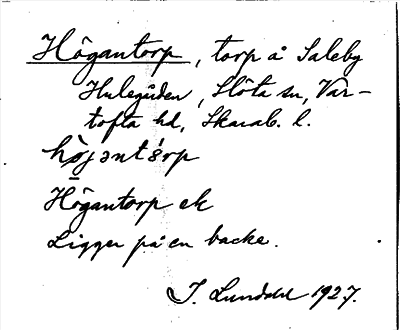 Högantorp, torp å Saleby
Hulegården, Slöta sn, Var-
tofta hd, Skarab. l.
hòjəntórp
Högantorp ek
Ligger på en backe.
J. Lundahl 1927.